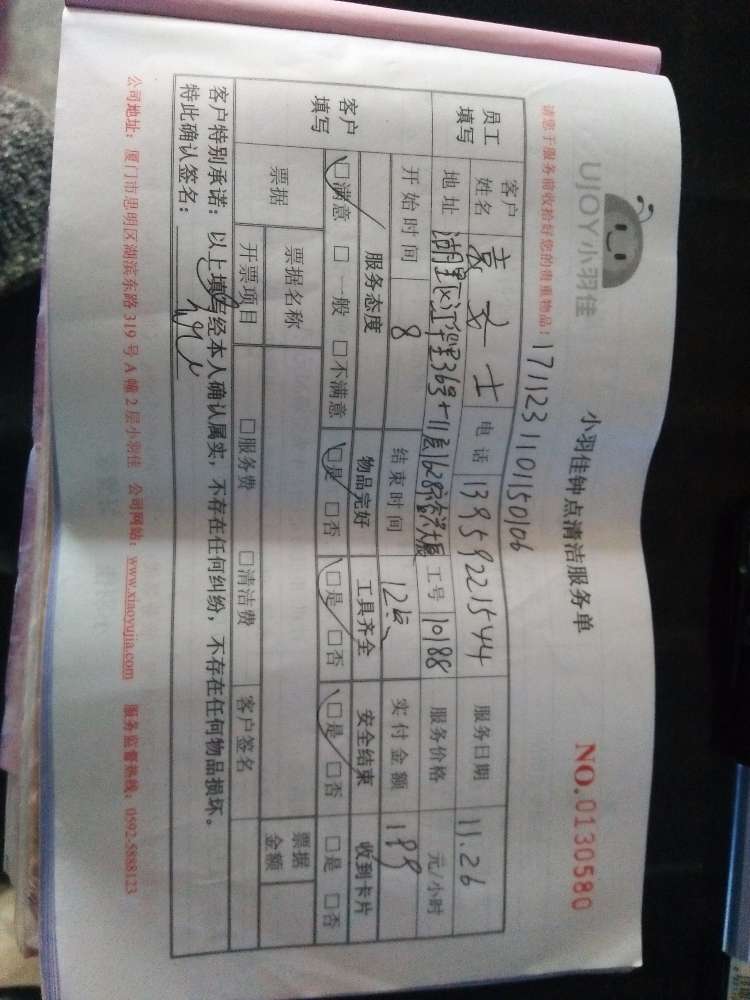 UJOY小羽佳
小羽佳钟点清洁服务单
NO.0130580
请您于服务前收拾好您的贵重物品!
1711231101150106
员工填写 客户姓名 袁女士 电话 13959221544 服务日期 11.26
地址 湖里区江华里36号十11层1628 工号 10188 服务价格 元/小时
开始时间 8 结束时间 12点 实付金额 188
客户填写 服务态度 物品完好 工具齐全 安全结束 收到卡片
□满意 □一般 □不满意 □是 □否 □是 □否 □是 □否 □是 □否
票据 票据名称 票据金额
开票项目 □服务费 □清洁费 客户签名
客户特别承诺:以上填写经本人确认属实,不存在任何纠纷,不存在任何物品损坏。
特此确认签名:
公司地址:厦门市思明区湖滨东路319号A幢2层小羽佳 公司网站:www.xiaoyujia.com 服务监督热线:0592-5888123